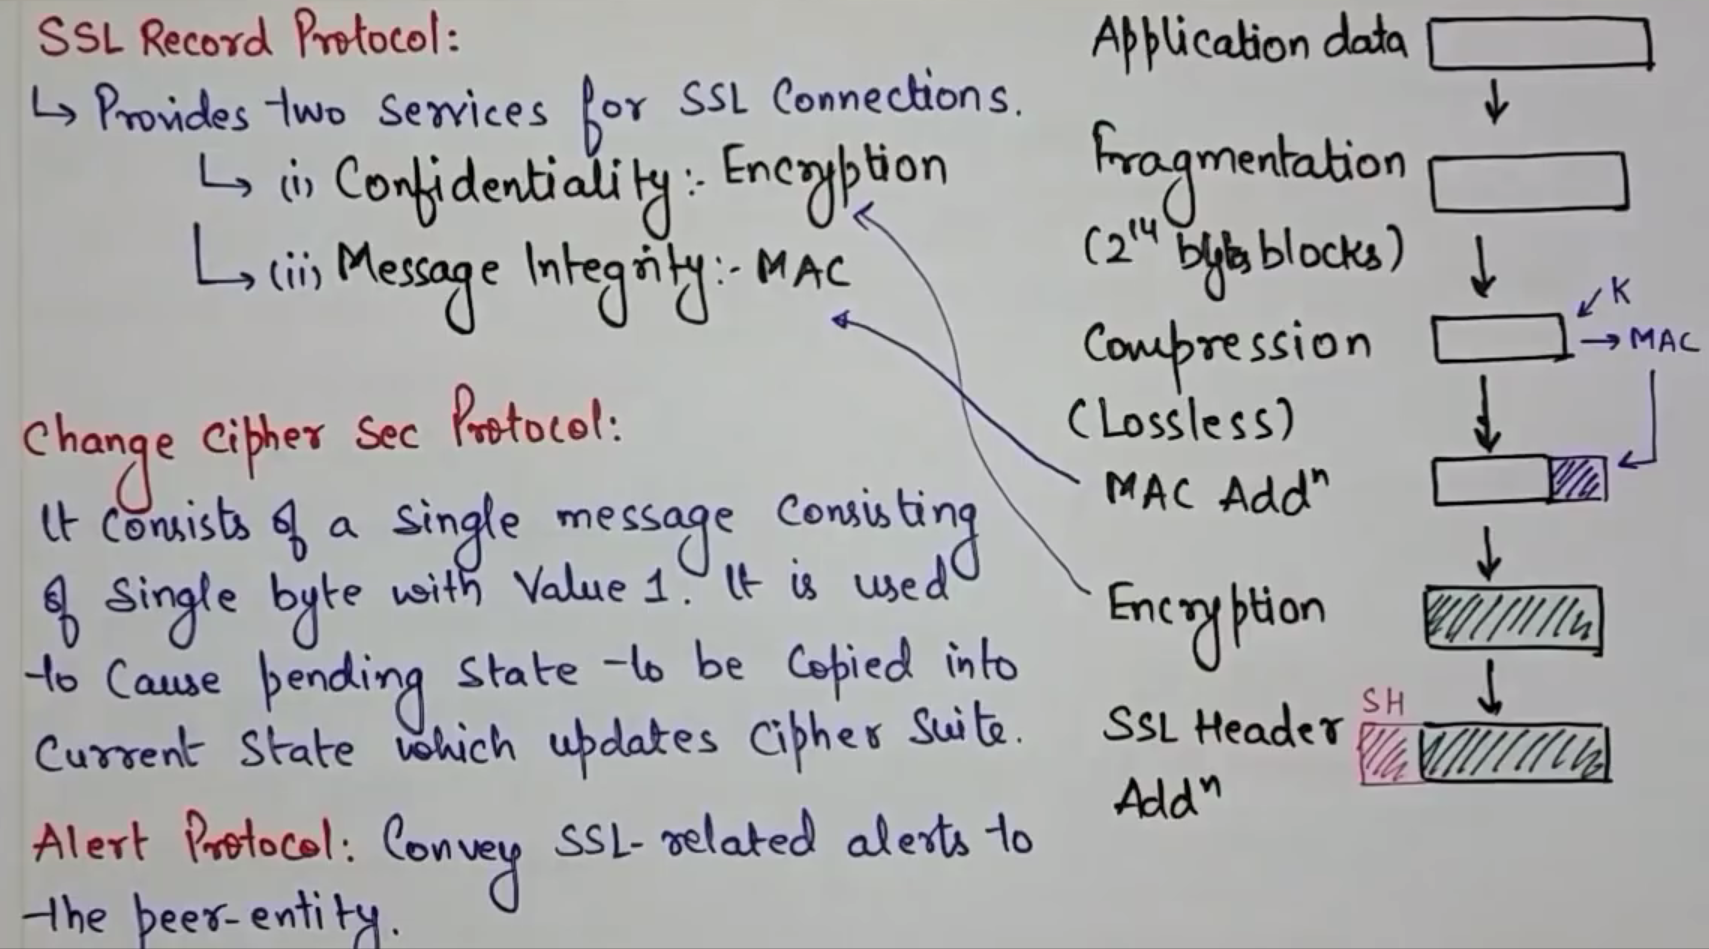 SSL Record Protocol:
↳ Provides two services for SSL Connections.
↳ (i) Confidentiality:- Encryption
↳ (ii) Message Integrity:- MAC
Change Cipher Sec Protocol:
It Consists of a Single message Consisting
of Single byte with Value 1. It is used
to Cause pending State to be Copied into
Current State which updates Cipher Suite.
Alert Protocol: Convey SSL-related alerts to
the peer-entity.
Application data
Fragmentation
(2¹⁴ bytes blocks)
K
Compression → MAC
(Lossless)
MAC Addⁿ
Encryption
SH
SSL Header
Addⁿ